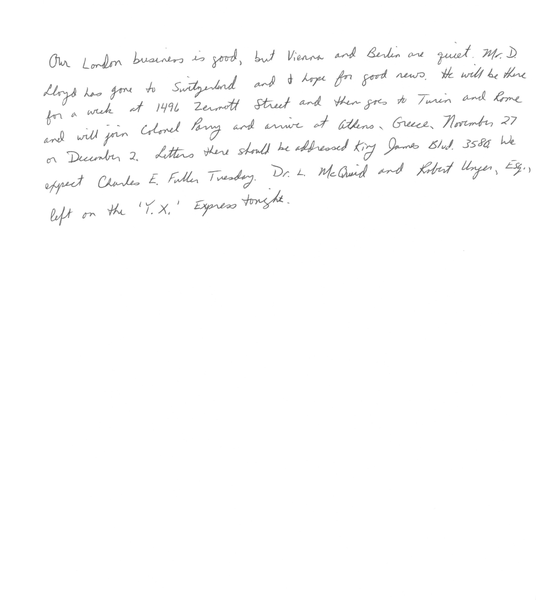 Our London business is good, but Vienna and Berlin are quiet. Mr. D.
Lloyd has gone to Switzerland and I hope for good news. He will be there
for a week at 1496 Zermott Street and then goes to Turin and Rome
and will join Colonel Parry and arrive at Athens, Greece, November 27
or December 2. Letters there should be addressed King James Blvd. 3580. We
expect Charles E. Fuller Tuesday. Dr. L. McQuid and Robert Unger, Esq.,
left on the 'Y.X.' Express tonight.